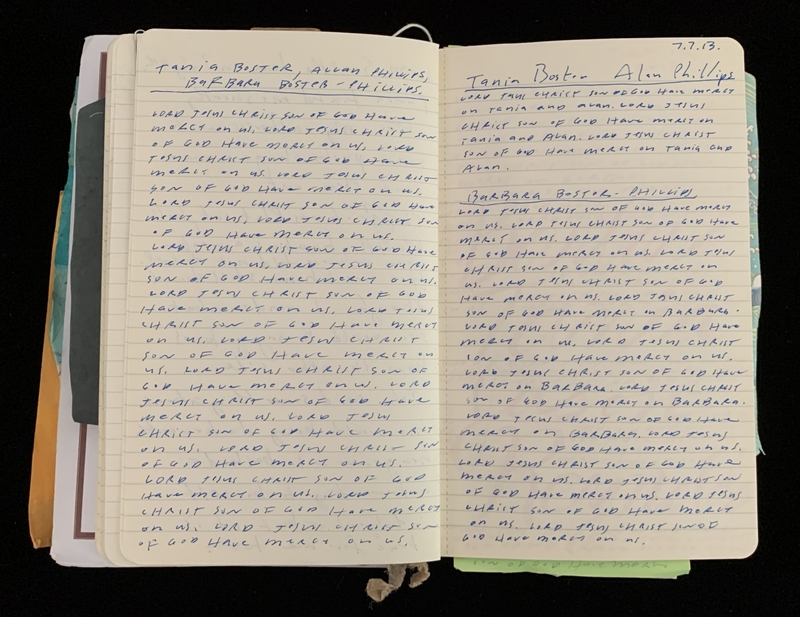 Tania Boster, Allan Phillips,
Barbara Boster-Phillips.
Lord Jesus Christ son of God Have
mercy on us. Lord Jesus Christ son
of God Have mercy on us. Lord
Jesus Christ son of God Have
mercy on us. Lord Jesus Christ
son of God Have mercy on us.
Lord Jesus Christ son of God Have
mercy on us. Lord Jesus Christ son
of God Have mercy on us.
Lord Jesus Christ son of God Have
mercy on us. Lord Jesus Christ
son of God Have mercy on us.
Lord Jesus Christ son of God
Have mercy on us. Lord Jesus
Christ son of God Have mercy
on us. Lord Jesus Christ
son of God Have mercy on
us. Lord Jesus Christ son of
God Have mercy on us. Lord
Jesus Christ son of God Have
mercy on us. Lord Jesus
Christ son of God Have mercy
on us. Lord Jesus Christ son
of God Have mercy on us.
Lord Jesus Christ son of God
Have mercy on us. Lord Jesus
Christ son of God Have mercy
on us. Lord Jesus Christ son
of God Have mercy on us.
7.7.13.
Tania Boster Alan Phillips
Lord Jesus Christ son of God Have mercy
on Tania and Alan. Lord Jesus
Christ son of God Have mercy on
Tania and Alan. Lord Jesus Christ
son of God Have mercy on Tania and
Alan.
Barbara Boster-Phillips
Lord Jesus Christ son of God Have mercy
on us. Lord Jesus Christ son of God Have
mercy on us. Lord Jesus Christ son
of God Have mercy on us. Lord Jesus
Christ son of God Have mercy on
us. Lord Jesus Christ son of God
Have mercy on us. Lord Jesus Christ
son of God Have mercy on Barbara.
Lord Jesus Christ son of God Have
mercy on us. Lord Jesus Christ
son of God Have mercy on us.
Lord Jesus Christ son of God Have
mercy on Barbara. Lord Jesus Christ
son of God Have mercy on Barbara.
Lord Jesus Christ son of God Have
mercy on Barbara. Lord Jesus
Christ son of God Have mercy on us.
Lord Jesus Christ son of God Have
mercy on us. Lord Jesus Christ son
of God Have mercy on us. Lord Jesus
Christ son of God Have mercy
on us. Lord Jesus Christ son of
God Have mercy on us.
son of God Have mercy